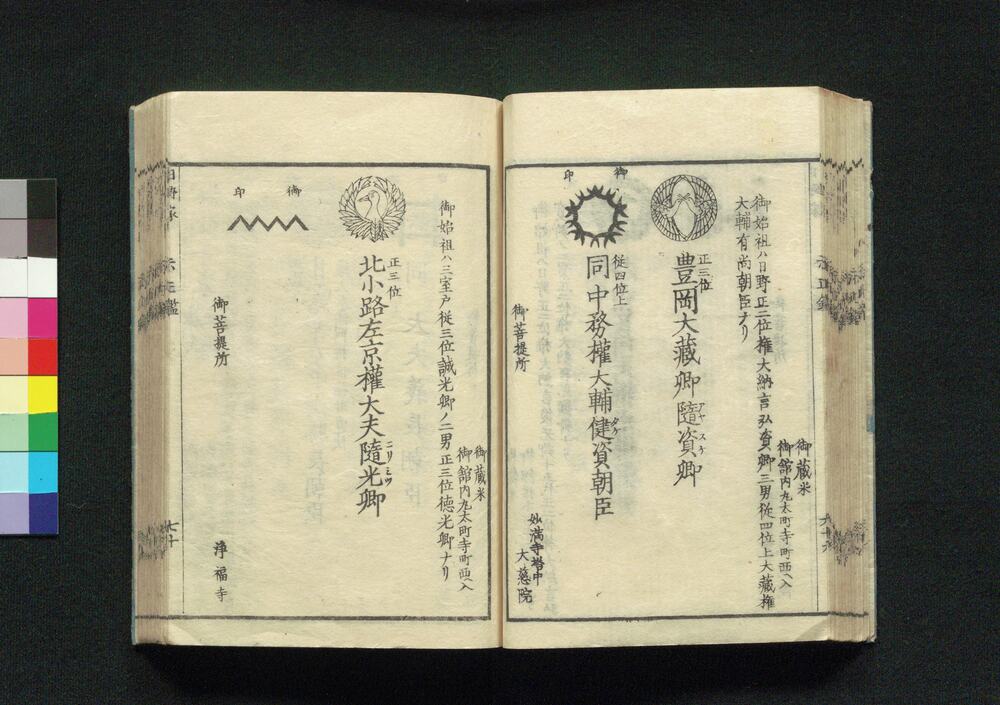 御蔵米
御舘内丸太町寺町西ヘ入
御始祖ハ日野正二位権大納言弘資卿三男従四位上大蔵権
大輔有尚朝臣ナリ
正三位
豊岡大蔵卿隨資卿
アヤスケ
御印
従四位上
同中務權大輔健資朝臣
タケ
御菩提所
妙満寺塔中
大慈院
御蔵米
御舘内丸太町寺町西ヘ入
御始祖ハ三室戸従三位誠光卿ノ二男正三位徳光卿ナリ
正三位
北小路左京權大夫隨光卿
ミツ
御印
御菩提所
浄福寺